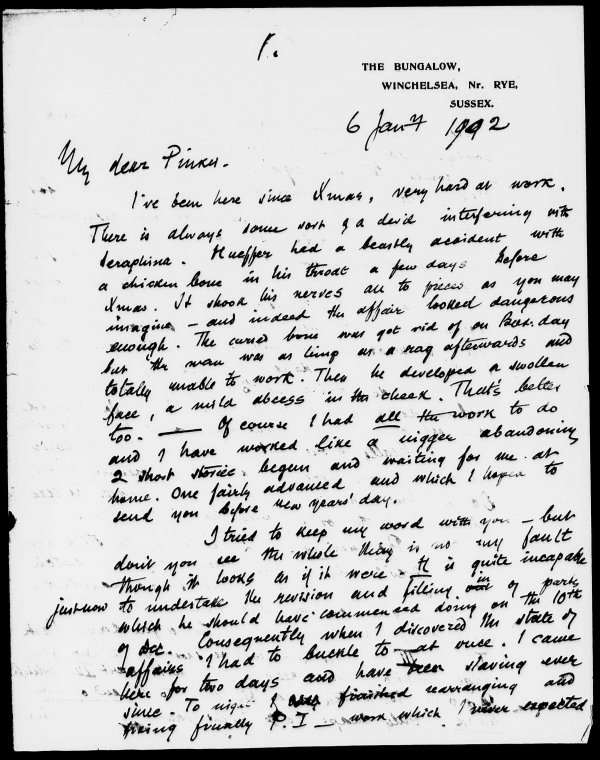 1.
THE BUNGALOW,
WINCHELSEA, Nr. RYE,
SUSSEX.
6 Jany 1902
My dear Pinker.
I've been here since Xmas, very hard at work.
There is always some sort of a devil interfering with
Seraphina. Hueffer had a beastly accident with
a chicken bone in his throat a few days before
Xmas. It shook his nerves all to pieces as you may
imagine – and indeed the affair looked dangerous
enough. The cursed bone was got rid of on Box. day
but the man was as limp as a rag afterwards and
totally unable to work. Then he developed a swollen
face, a mild abcess in the cheek. That's better
too. — Of course I had all the work to do
and I have worked like a nigger abandoning
2 short stories begun and waiting for me at
home. One fairly advanced and which I hoped to
send you before new years' day.
I tried to keep my word with you – but
don't you see the whole thing is no my fault
though it looks as if it were. H is quite incapable
just now to undertake the revision and filling in of parts
which he should have commenced doing on the 10th
of Dec. Consequently when I discovered the state of
affairs I had to buckle to – at once. I came
here for two days and have been slaving ever
since. To night I finished rearranging and
fixing finally P. I – work which I never expected